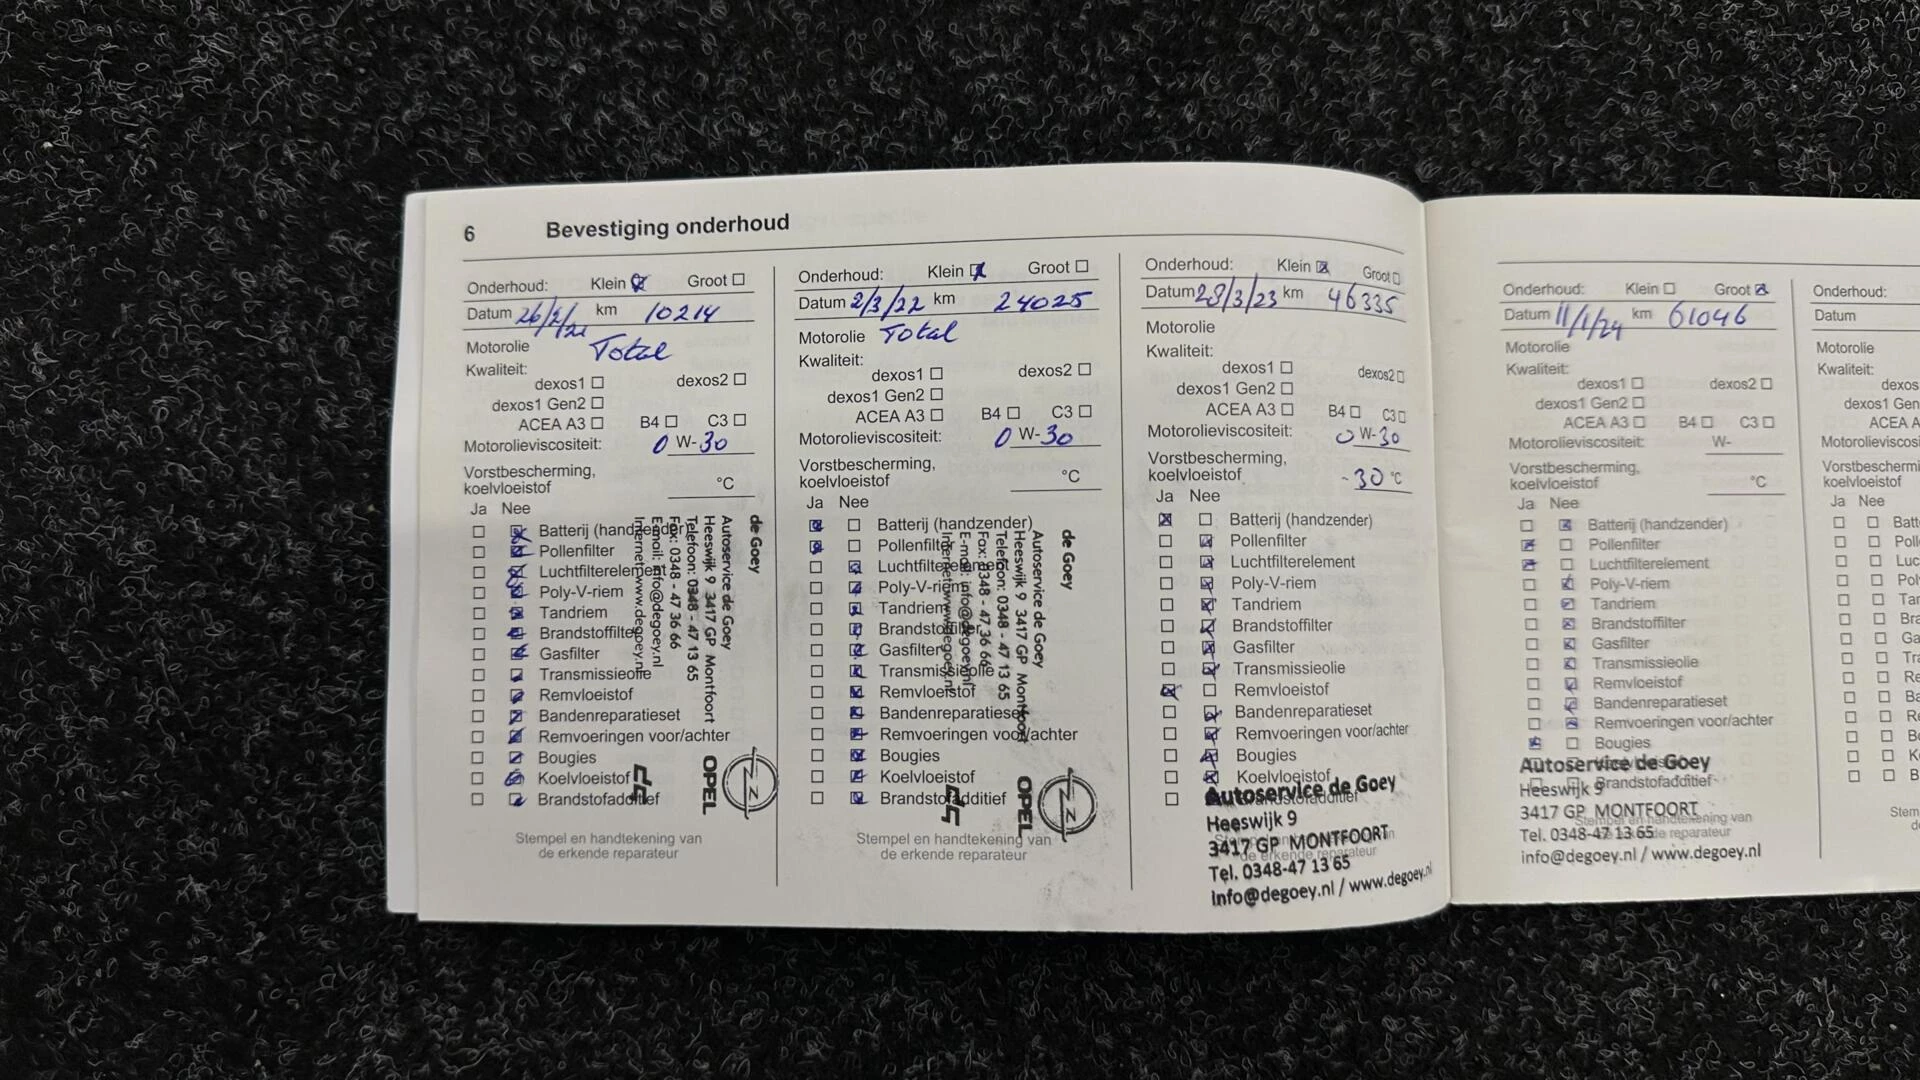 6 Bevestiging onderhoud
Onderhoud: Klein Groot
Datum 26/2/21 km 10214
Motorolie Total
Kwaliteit:
dexos1 dexos2
dexos1 Gen2
ACEA A3 B4 C3
Motorolieviscositeit: 0 W-30
Vorstbescherming,
koelvloeistof °C
Ja Nee
Batterij (handzender)
Pollenfilter
Luchtfilterelement
Poly-V-riem
Tandriem
Brandstoffilter
Gasfilter
Transmissieolie
Remvloeistof
Bandenreparatieset
Remvoeringen voor/achter
Bougies
Koelvloeistof
Brandstofadditief
de Goey
Autoservice de Goey
Heeswijk 9 3417 GP Montfoort
Telefoon: 0348 - 47 13 65
Fax: 0348 - 47 36 66
E-mail: info@degoey.nl
Internet: www.degoey.nl
OPEL
Stempel en handtekening van
de erkende reparateur
Onderhoud: Klein Groot
Datum 2/3/22 km 24025
Motorolie Total
Kwaliteit:
dexos1 dexos2
dexos1 Gen2
ACEA A3 B4 C3
Motorolieviscositeit: 0 W-30
Vorstbescherming,
koelvloeistof °C
Ja Nee
Batterij (handzender)
Pollenfilter
Luchtfilterelement
Poly-V-riem
Tandriem
Brandstoffilter
Gasfilter
Transmissieolie
Remvloeistof
Bandenreparatieset
Remvoeringen voor/achter
Bougies
Koelvloeistof
Brandstofadditief
de Goey
Autoservice de Goey
Heeswijk 9 3417 GP Montfoort
Telefoon: 0348 - 47 13 65
Fax: 0348 - 47 36 66
E-mail: info@degoey.nl
Internet: www.degoey.nl
OPEL
Stempel en handtekening van
de erkende reparateur
Onderhoud: Klein Groot
Datum 28/3/23 km 46335
Motorolie
Kwaliteit:
dexos1 dexos2
dexos1 Gen2
ACEA A3 B4 C3
Motorolieviscositeit: 0 W-30
Vorstbescherming,
koelvloeistof -30 °C
Ja Nee
Batterij (handzender)
Pollenfilter
Luchtfilterelement
Poly-V-riem
Tandriem
Brandstoffilter
Gasfilter
Transmissieolie
Remvloeistof
Bandenreparatieset
Remvoeringen voor/achter
Bougies
Koelvloeistof
Brandstofadditief
Autoservice de Goey
Heeswijk 9
3417 GP MONTFOORT
Tel. 0348-47 13 65
info@degoey.nl / www.degoey.nl
de erkende reparateur
Onderhoud: Klein Groot
Datum 11/1/24 km 61046
Motorolie
Kwaliteit:
dexos1 dexos2
dexos1 Gen2
ACEA A3 B4 C3
Motorolieviscositeit: W-
Vorstbescherming,
koelvloeistof °C
Ja Nee
Batterij (handzender)
Pollenfilter
Luchtfilterelement
Poly-V-riem
Tandriem
Brandstoffilter
Gasfilter
Transmissieolie
Remvloeistof
Bandenreparatieset
Remvoeringen voor/achter
Bougies
Koelvloeistof
Brandstofadditief
Autoservice de Goey
Heeswijk 9
3417 GP MONTFOORT
Tel. 0348-47 13 65
info@degoey.nl / www.degoey.nl
Stempel en handtekening van
de erkende reparateur
Onderhoud:
Datum
Motorolie
Kwaliteit:
dexos
dexos1 Gen
ACEA A
Motorolieviscosi
Vorstbeschermi
koelvloeistof
Ja Nee
Batt
Poll
Luc
Pol
Tar
Bra
Ga
Tra
Re
Ba
Re
Bo
K
B
Stem
d